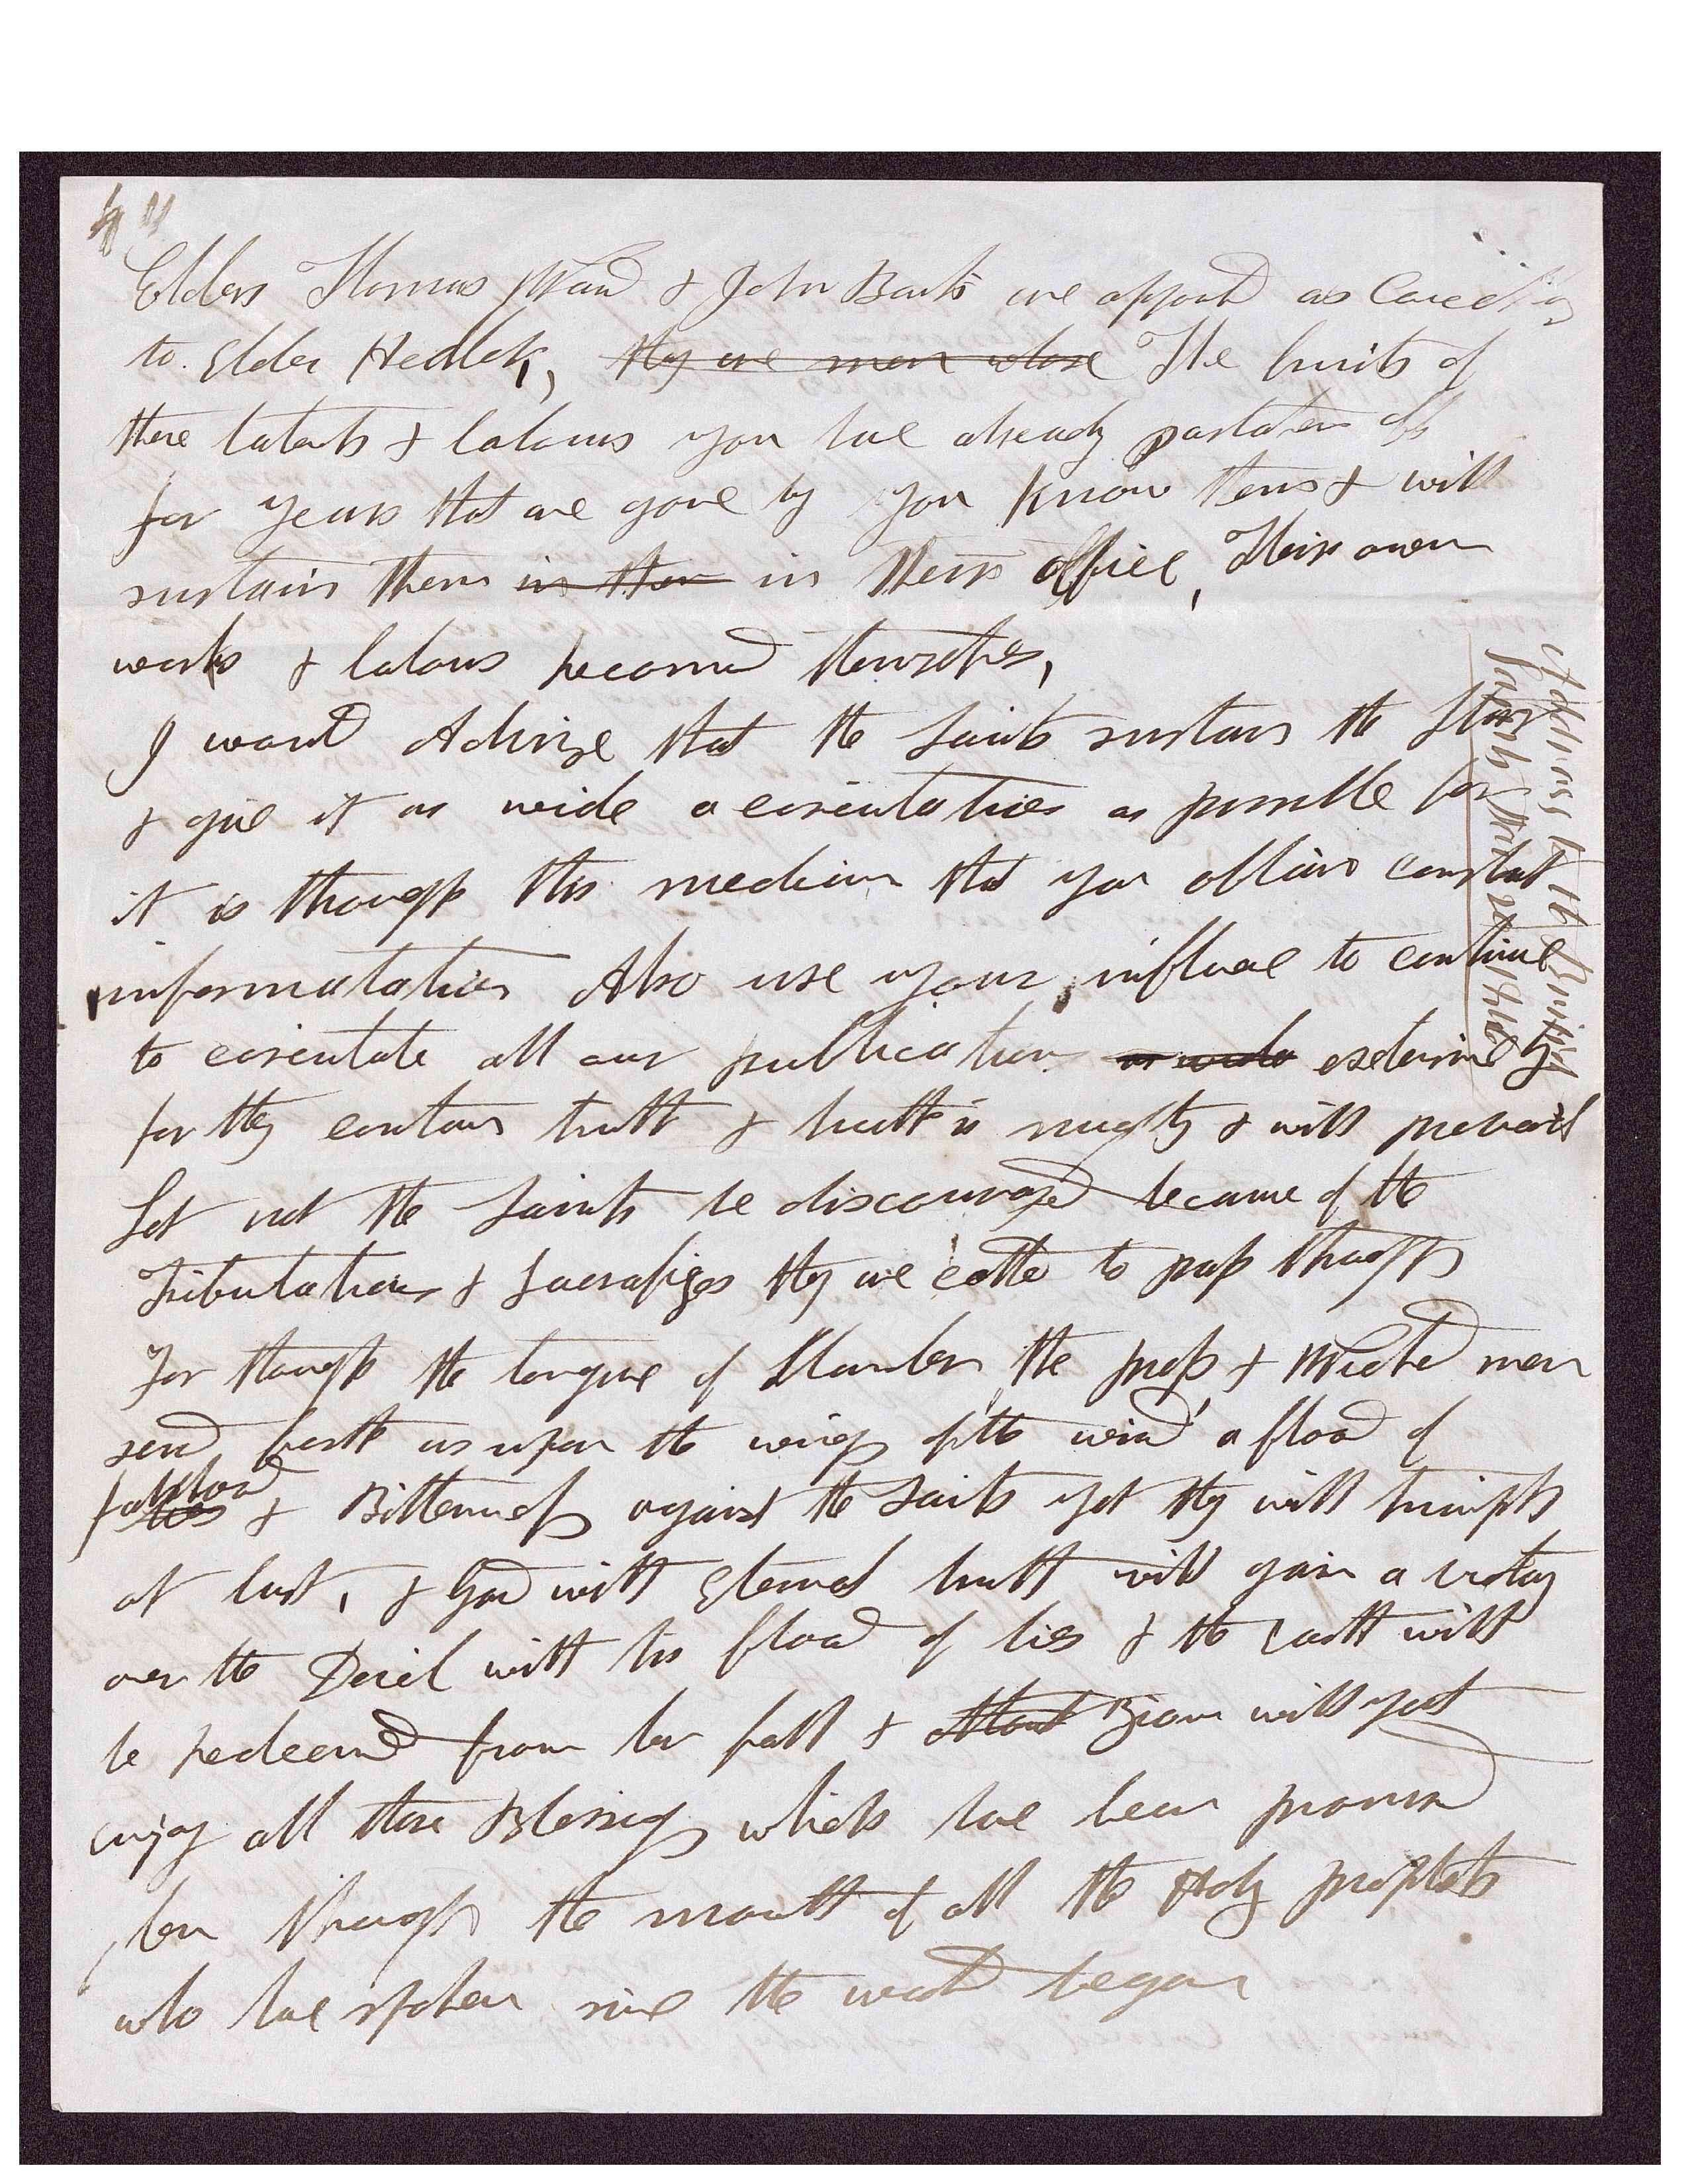 4
Elders Thomas Ward & John Banks are appont as Councilors
to Elder Hedlok, they are men whose The fruits of
there talents & labours you have already partaken off
for years that are gone by you know them & will
sustain them in ther in their office, Their own
works & labours recomend themselves,
I would Advise that the Saints sustain the Star
& give it as wide a circulation as possible for
it is through this medium that you obtain constant
informatation Also use your influence to continue
to circulate all our publication as wide extensively
for they contain truth & truth is mighty & will prevail
Let not the Saints be discouraged because of the
Tribulations & Sacrafizes they are called to pass through
For though the tongue of Slander the press & Wicked men
send forth as upon the wings of the wind a flood of
falshood lies & Bitterness against the Saints yet they will triumph
at last, & God with Eternal truth will gain a victory
over the Devil with his flood of lies & the earth will
be redeemed from her fall & Zion will yet
enjoy all those Blessings which have been promised
her through the mouth of all the Holy prophets
who have spoken since the world began
Address to the British
Saints 1846